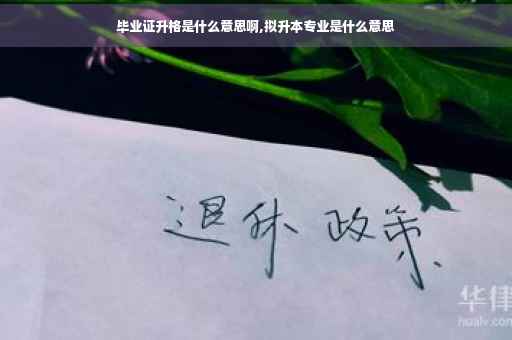 毕业证升格是什么意思啊,拟升本专业是什么意思
退休 政策
华律
hualv.com